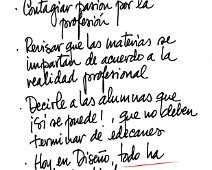 · Contagiar pasión por la
profesión
· Revisar que las materias se
impartan de acuerdo a la
realidad profesional
· Decirle a las alumnas que
¡Sí se puede!, que no deben
terminar de edecanes
· Hoy en Diseño, todo ha